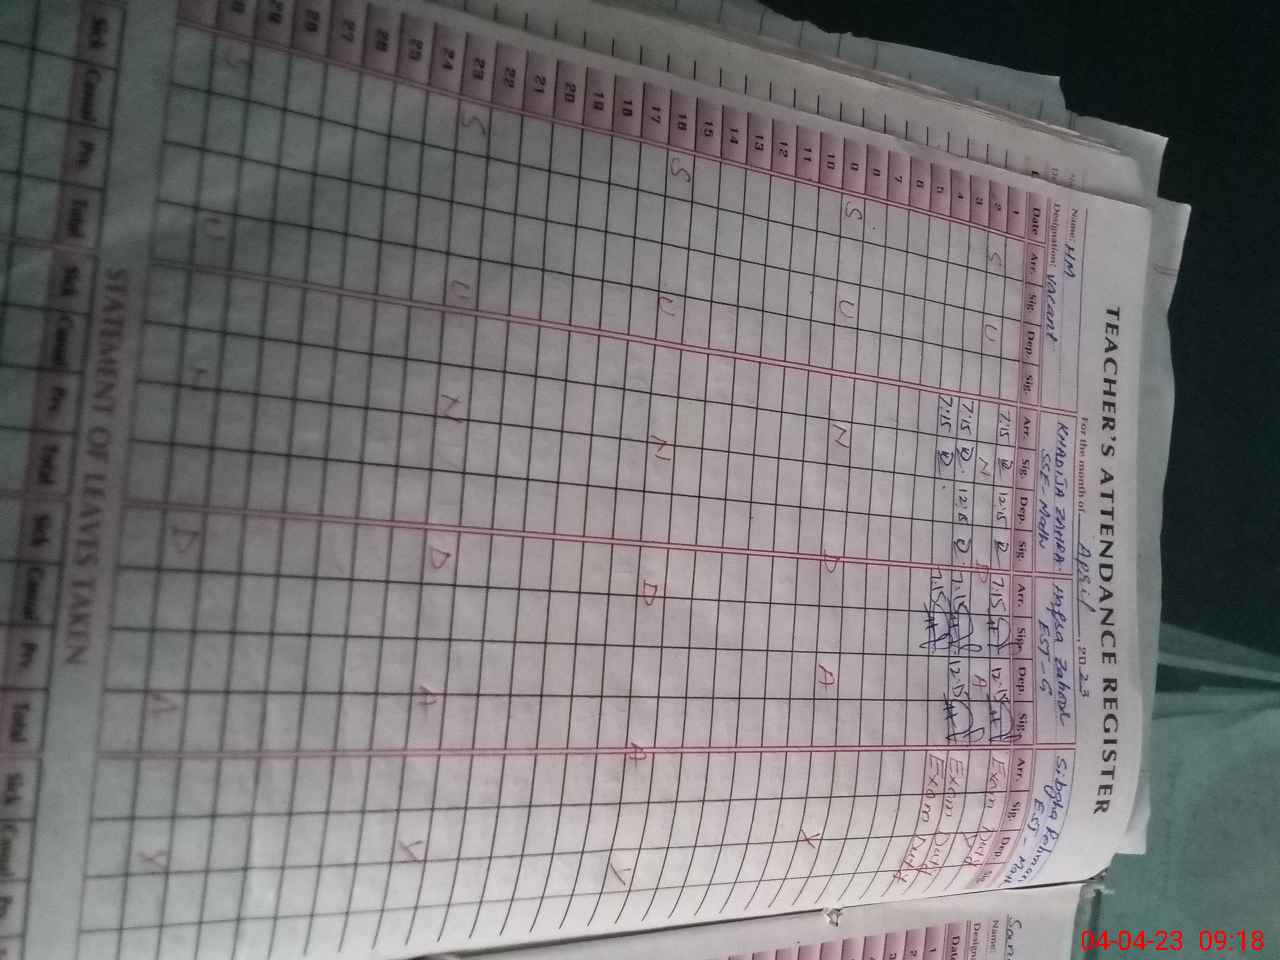 TEACHER'S ATTENDANCE REGISTER
For the month of April, 2023
Name: HM KHADIJA ZAHRA Hafsa Zahoor Sibgha Rehman
Designation: Vacant SSE-Math EST-G EST-Math
Date Arr. Sig. Dep. Sig. Arr. Sig. Dep. Sig. Arr. Sign. Dep. Sig. Arr. Sig. Dep. Sig.
1 7:15 12:15 7:15 12:15 Exam Duty
2 S U N D A Y
3 7:15 12:15 7:15 12:15 Exam Duty
4 7:15 7:15 Exam Duty
5
6
7
8
9 S U N D A Y
10
11
12
13
14
15
16 S U N D A Y
17
18
19
20
21
22
23 S U N D A Y
24
25
26
27
28
29
30 S U N D A Y
STATEMENT OF LEAVES TAKEN
Sick Casual Prv. Total Sick Casual Prv. Total Sick Casual Prv. Total Sick Casual Prv.
Name:
Date
1
2
3
4
5
04-04-23 09:18